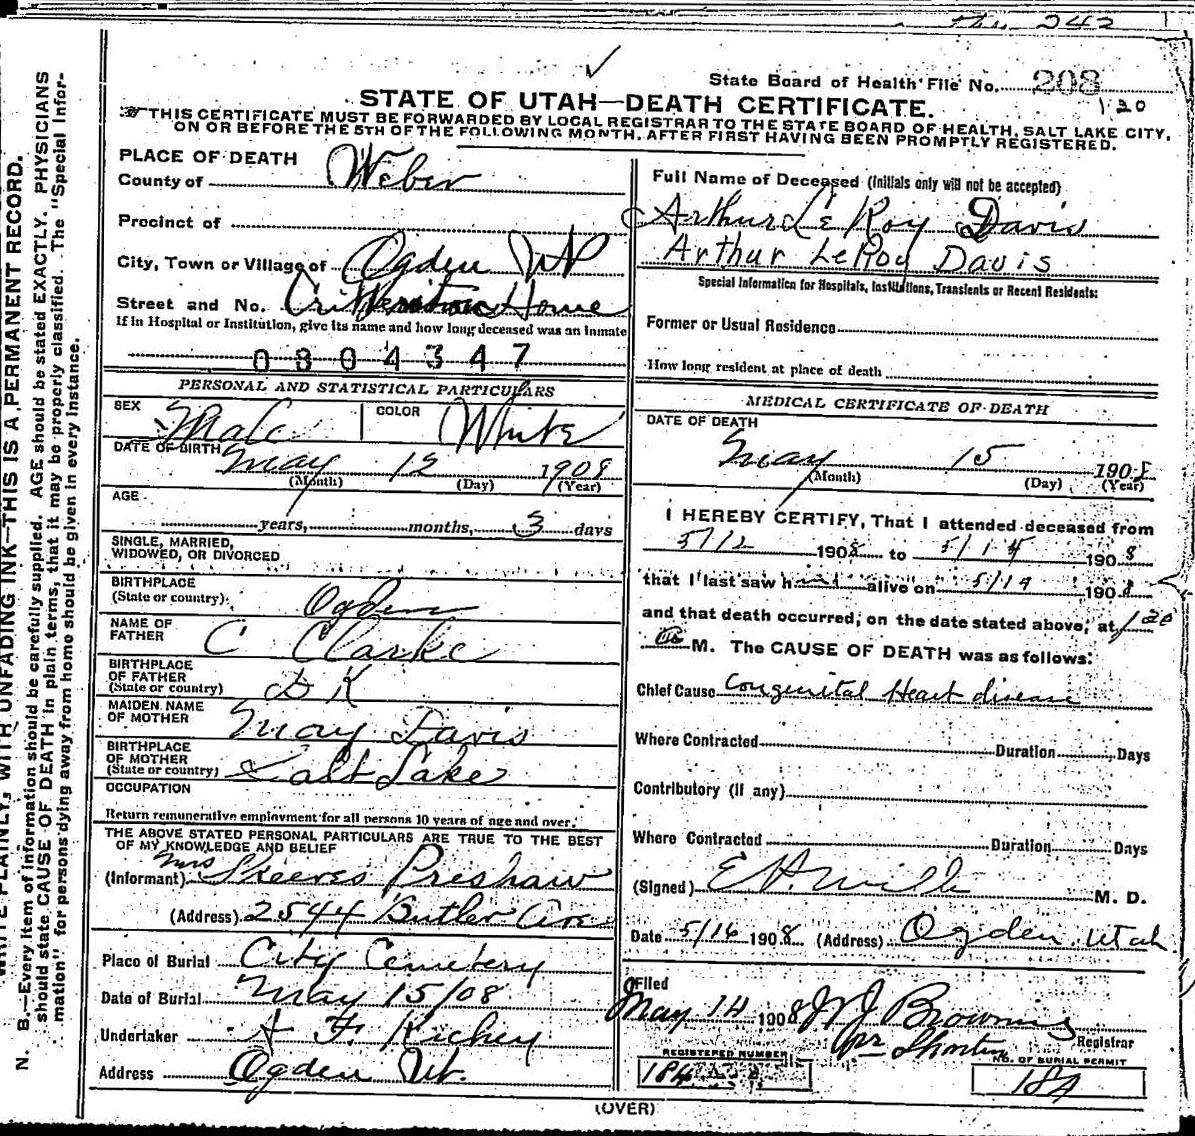 242
State Board of Health File No. 208
1.20
STATE OF UTAH—DEATH CERTIFICATE.
THIS CERTIFICATE MUST BE FORWARDED BY LOCAL REGISTRAR TO THE STATE BOARD OF HEALTH, SALT LAKE CITY,
ON OR BEFORE THE 5TH OF THE FOLLOWING MONTH, AFTER FIRST HAVING BEEN PROMPTLY REGISTERED.
WRITE PLAINLY, WITH UNFADING INK—THIS IS A PERMANENT RECORD.
N. B.—Every item of information should be carefully supplied. AGE should be stated EXACTLY. PHYSICIANS
should state CAUSE OF DEATH in plain terms, that it may be properly classified. The "Special Infor-
mation" for persons dying away from home should be given in every instance.
PLACE OF DEATH
County of Weber
Precinct of
City, Town or Village of Ogden
Street and No. Home
If in Hospital or Institution, give its name and how long deceased was an inmate
0804347
PERSONAL AND STATISTICAL PARTICULARS
SEX Male COLOR White
DATE OF BIRTH May 12 1908
(Month) (Day) (Year)
AGE
years, months, 3 days
SINGLE, MARRIED,
WIDOWED, OR DIVORCED
BIRTHPLACE
(State or country) Ogden
NAME OF
FATHER C Clarke
BIRTHPLACE
OF FATHER
(State or country) D K
MAIDEN NAME
OF MOTHER May Davis
BIRTHPLACE
OF MOTHER
(State or country) Salt Lake
OCCUPATION
Return remunerative employment for all persons 10 years of age and over.
THE ABOVE STATED PERSONAL PARTICULARS ARE TRUE TO THE BEST
OF MY KNOWLEDGE AND BELIEF
(Informant) Mrs Preshaw
(Address) 2544 Butler Ave
Place of Burial City Cemetery
Date of Burial May 15/08
Undertaker F. Richey
Address Ogden Ut.
Full Name of Deceased (Initials only will not be accepted)
Arthur Le Roy Davis
Arthur LeRoy Davis
Special Information for Hospitals, Institutions, Transients or Recent Residents:
Former or Usual Residence
How long resident at place of death
MEDICAL CERTIFICATE OF DEATH
DATE OF DEATH
May 15 1908
(Month) (Day) (Year)
I HEREBY CERTIFY, That I attended deceased from
5/12 1908 to 5/14 1908
that I last saw him alive on 5/14 1908
and that death occurred, on the date stated above, at 1 20
M. The CAUSE OF DEATH was as follows:
Chief Cause Congenital Heart disease
Where Contracted Duration Days
Contributory (if any)
Where Contracted Duration Days
(Signed) M. D.
Date 5/16 1908 (Address) Ogden, Utah
Filed
May 14 1908 Browning
Registrar
REGISTERED NUMBER
184
NO. OF BURIAL PERMIT
184
(OVER)